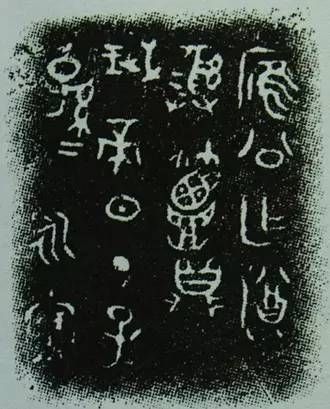 雁公乍尊
彝簟鼎
珷帝日丁子
孫=永寶